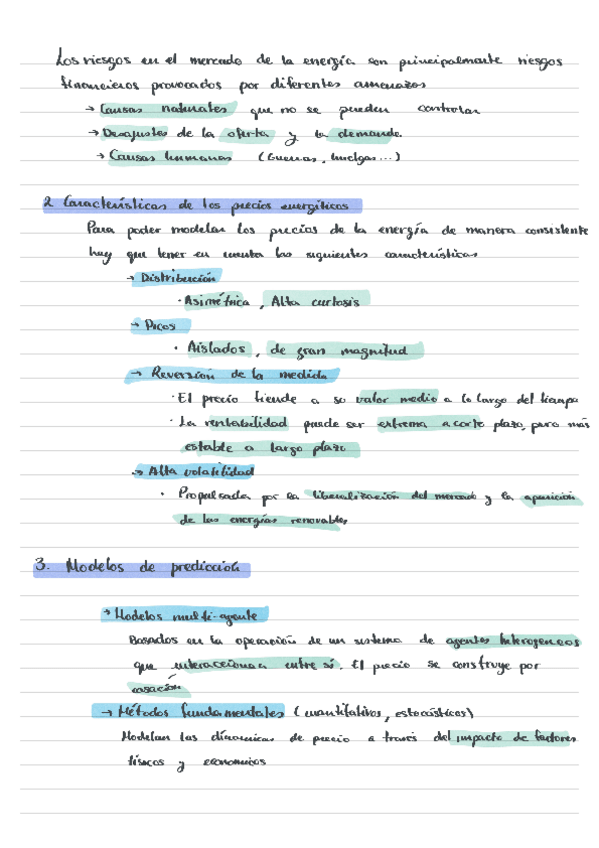 Los riesgos en el mercado de la energía son principalmente riesgos
financieros provocados por diferentes amenazas
→ Causas naturales que no se pueden controlar
→ Desajustes de la oferta y la demanda
→ Causas humanas (Guerras, huelgas...)
2 Características de los precios energéticos
Para poder modelar los precios de la energía de manera consistente
hay que tener en cuenta las siguientes características
→ Distribución
· Asimétrica, Alta curtosis
→ Picos
· Aislados, de gran magnitud
→ Reversión de la medida
· El precio tiende a su valor medio a lo largo del tiempo
· La rentabilidad puede ser extrema a corto plazo, pero más
estable a largo plazo
→ Alta volatilidad
· Propulsada por la liberalización del mercado y la aparición
de las energías renovables
3. Modelos de predicción
→ Modelos multi-agente
Basados en la operación de un sistema de agentes heterogéneos
que interaccionan entre sí. El precio se construye por
casación
→ Métodos fundamentales (cuantitativos, estocásticos)
Modelan las dinámicas de precio a través del impacto de factores
físicos y económicos